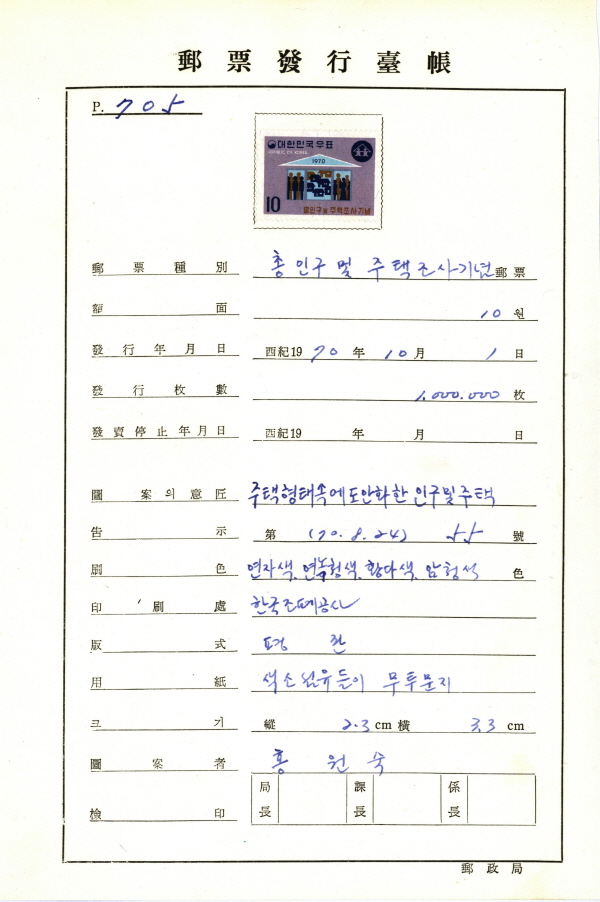 郵票發行臺帳
P. 705
대한민국우표
REPUBLIC OF KOREA
1970
10
총인구 및 주택조사기념
郵票種別 총인구 및 주택조사기념 郵票
額面 10 원
發行年月日 西紀19 70 年 10 月 1 日
發行枚數 1,000,000 枚
發賣停止年月日 西紀19 年 月 日
圖案의意匠 주택형태속에도안화한 인구및주택
告示 第 (70.8.24) 55 號
刷色 연자색, 황다색, 암청색 色
印刷處 한국조폐공사
版式 평판
用紙 색소섬유들이 무투문지
크기 縱 2.3 cm 橫 3.3 cm
圖案者 홍원숙
檢印 局長 課長 係長
郵政局